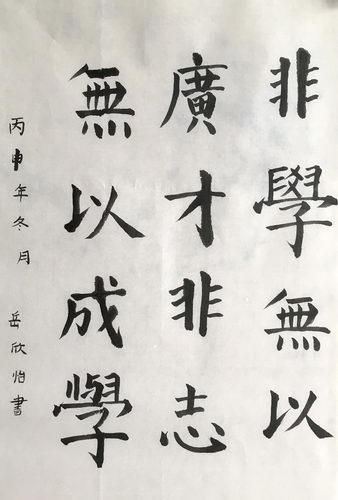 非學無以
廣才非志
無以成學
丙申年冬月 岳欣怡書